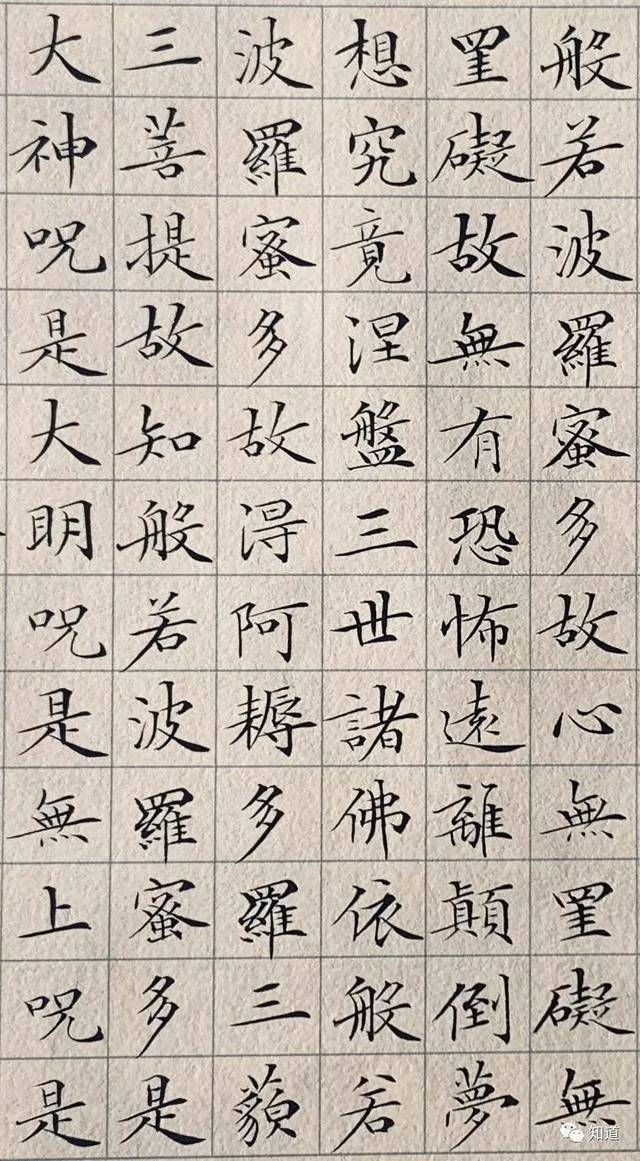 般若波羅蜜多故心無罣礙無
罣礙故無有恐怖遠離顛倒夢
想究竟涅盤三世諸佛依般若
波羅蜜多故得阿耨多羅三藐
三菩提故知般若波羅蜜多是
大神呪是大明呪是無上呪是
知道